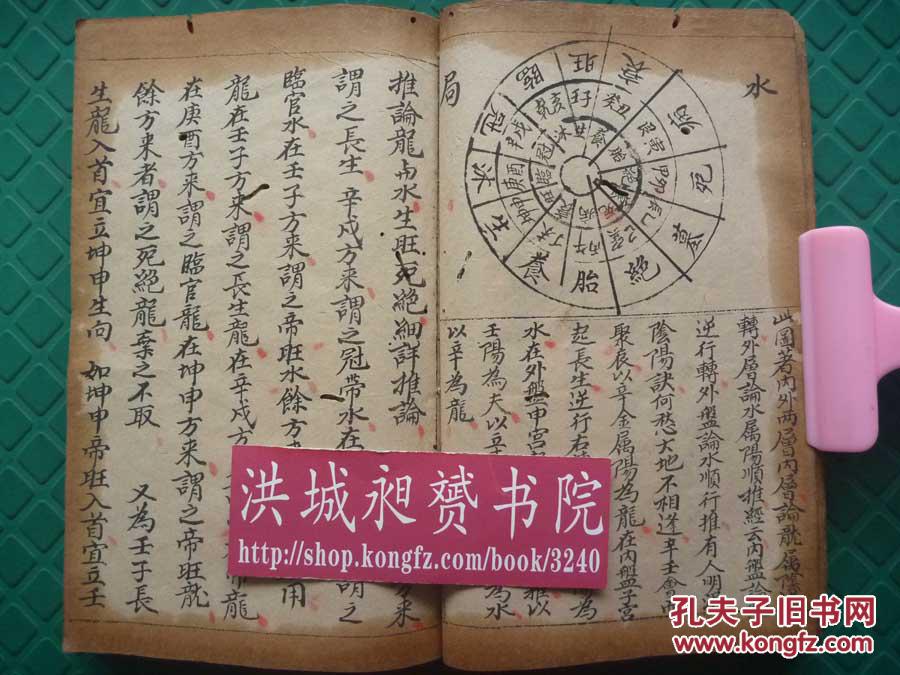 水
局
衰
病
死
墓
絕
胎
養
生
沐
冠
臨
旺
壬子
癸丑
艮寅
甲卯
丙午
坤申
庚酉
辛戌
乾亥
此圖著內外两層內層論龍属陰
轉外層論水属陽順推經云內盤論
逆行轉外盤論水順行推有人明
陰陽訣何愁大地不相逢辛壬會
聚辰以辛金属陽為龍在內盤子宮
起長生逆行右
為
水在外盤申宮
以
壬陽為夫以辛
為水
以辛為龍
推論龍与水生旺死絕細詳推論
方來
謂之長生 辛戌方來謂之冠帶水在
臨官水在壬子方來謂之帝旺水餘方
用
龍在壬子方來謂之長生龍在辛戌方
龍
在庚酉方來謂之臨官龍在坤申方來謂之帝旺龍
餘方來者謂之死絕龍棄之不取 又為壬子長
生龍入首宜立坤申生向 如坤申帝旺入首宜立壬
洪城昶赟书院
http://shop.kongfz.com/book/3240
孔夫子旧书网
www.kongfz.com